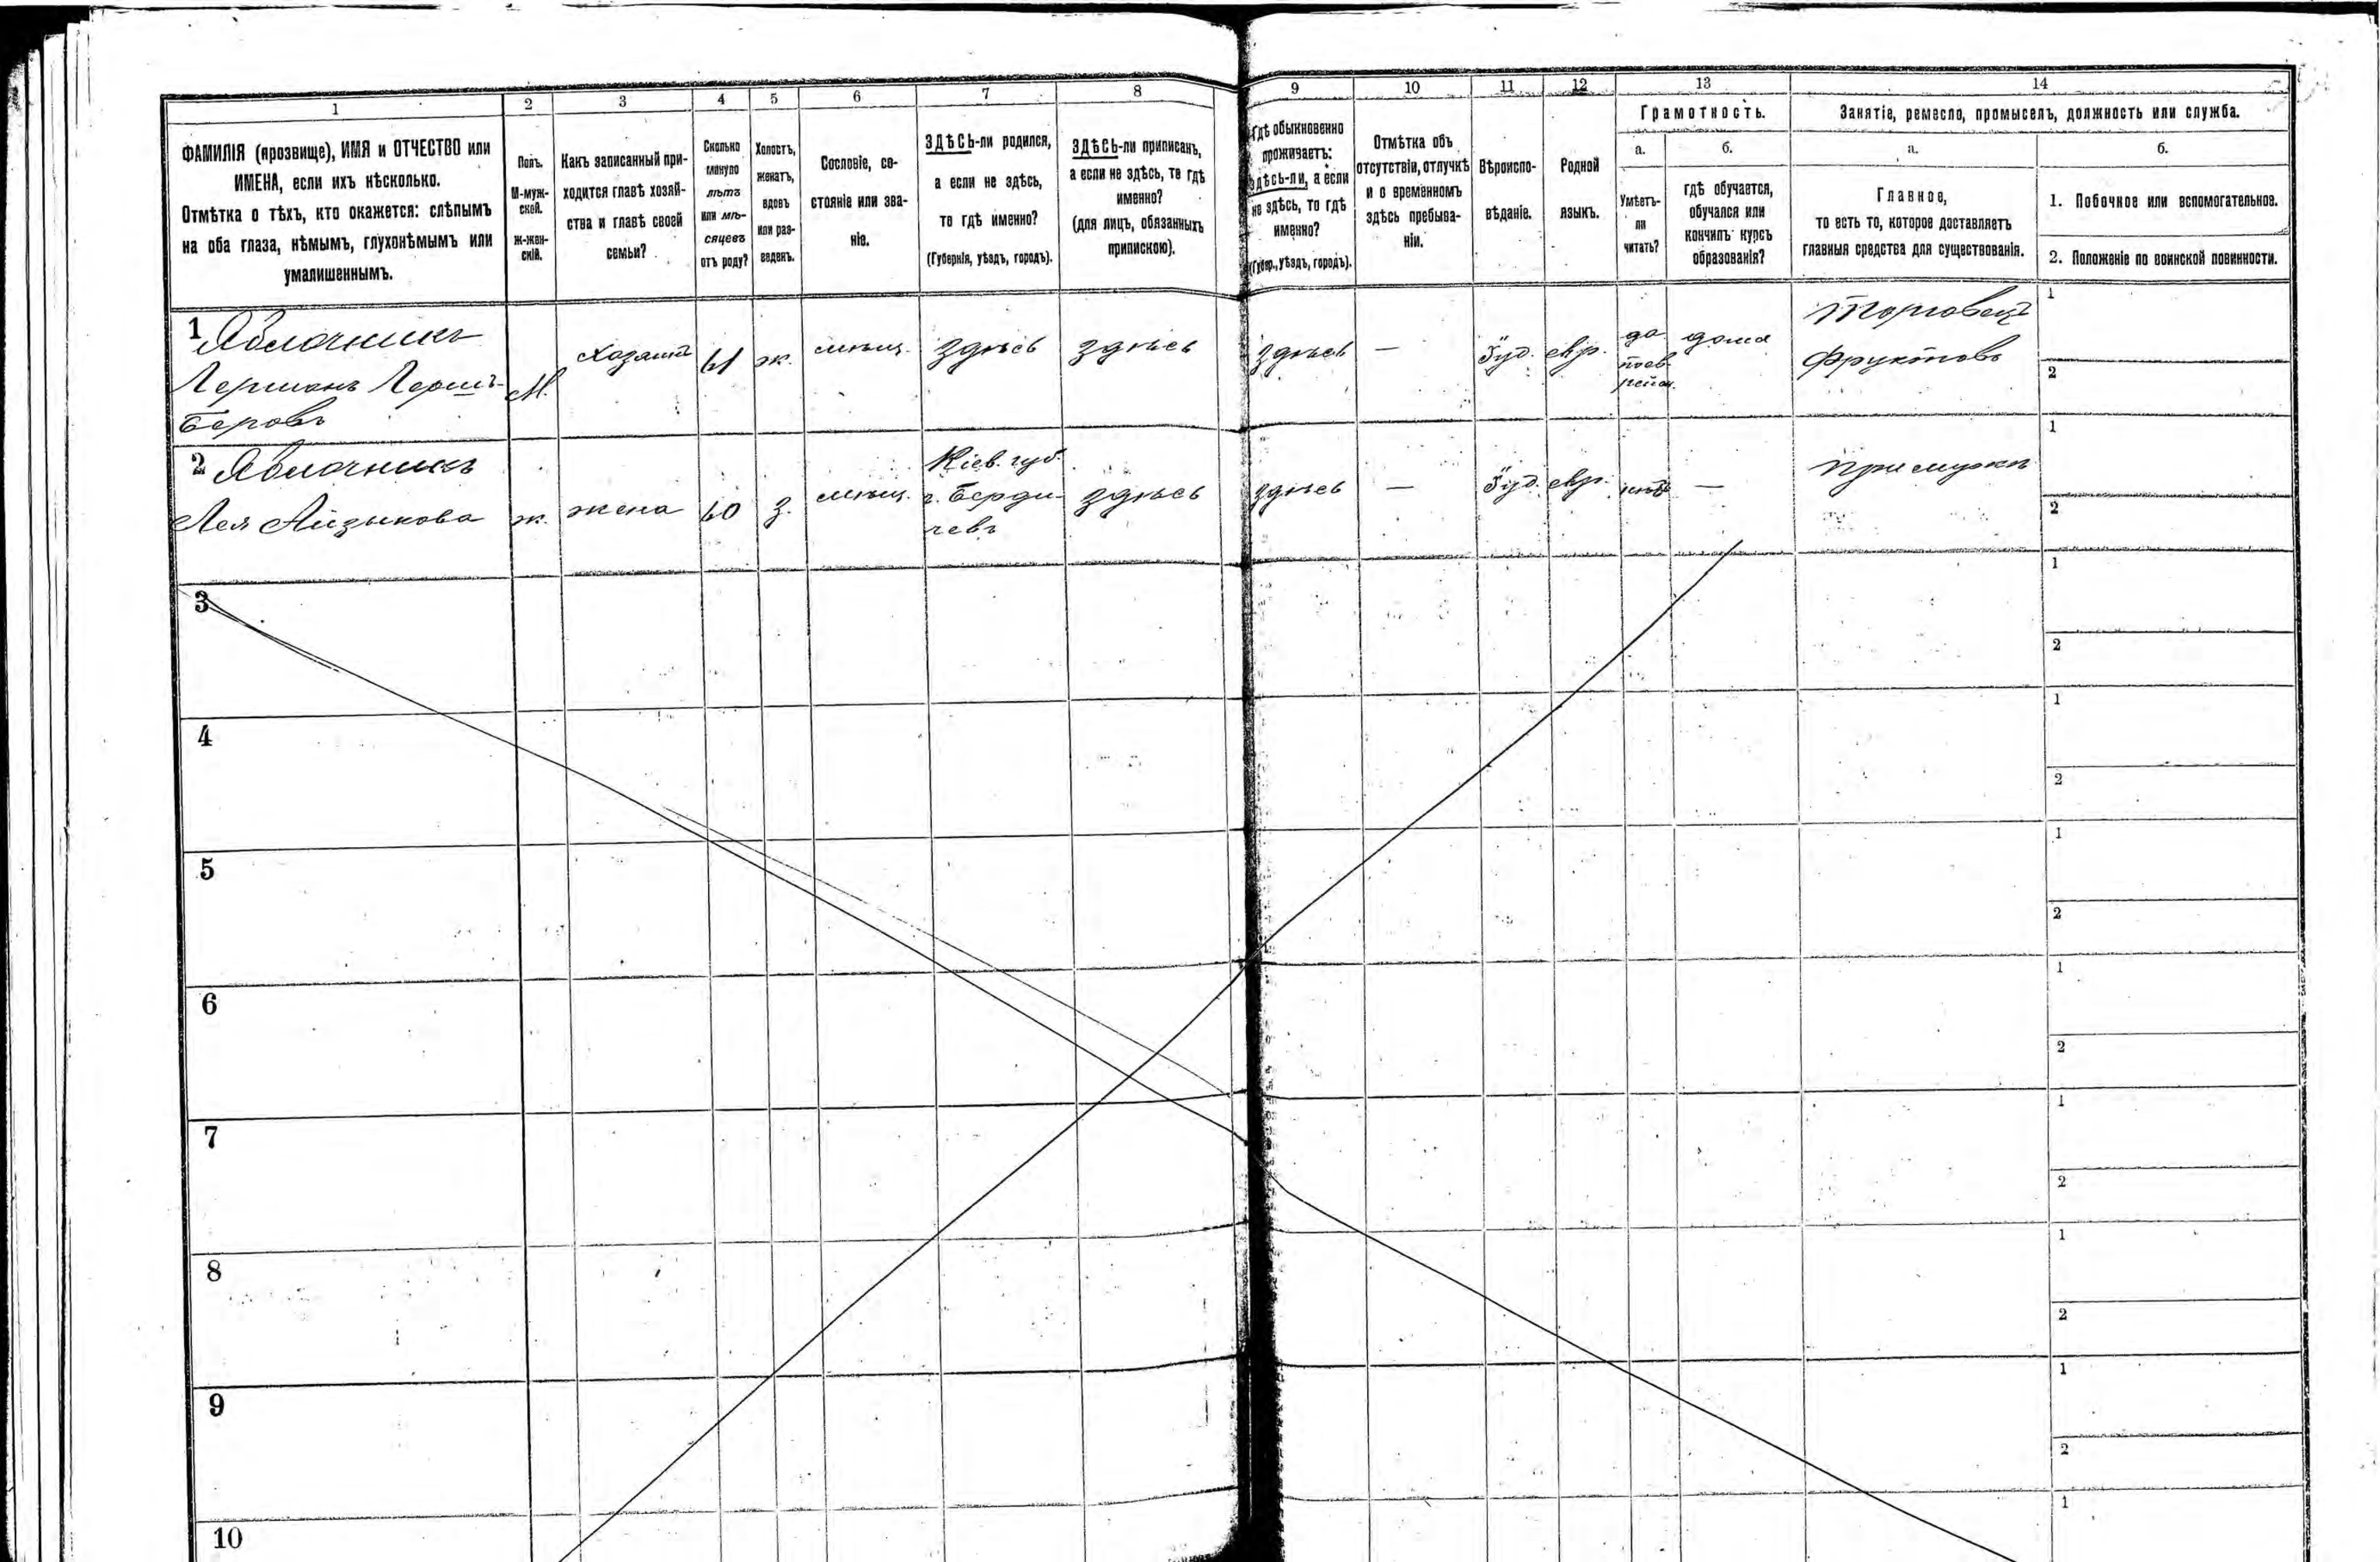 1 2 3 4 5 6 7 8 9 10 11 12 13 14
ФАМИЛІЯ (прозвище), ИМЯ и ОТЧЕСТВО или
ИМЕНА, если ихъ нѣсколько.
Отмѣтка о тѣхъ, кто окажется: слѣпымъ
на оба глаза, нѣмымъ, глухонѣмымъ или
умалишеннымъ.
Полъ.
М-муж-
ской.
Ж-жен-
скій.
Какъ записанный при-
ходится главѣ хозяй-
ства и главѣ своей
семьи?
Сколько
минуло
лѣтъ
или мѣ-
сяцевъ
отъ роду?
Холостъ,
женатъ,
вдовъ
или раз-
веденъ.
Сословіе, со-
стояніе или зва-
ніе.
ЗДѢСЬ-ли родился,
а если не здѣсь,
то гдѣ именно?
(Губернія, уѣздъ, городъ).
ЗДѢСЬ-ли приписанъ,
а если не здѣсь, то гдѣ
именно?
(для лицъ, обязанныхъ
припискою).
Гдѣ обыкновенно
проживаетъ:
здѣсь-ли, а если
не здѣсь, то гдѣ
именно?
(Губер., уѣздъ, городъ).
Отмѣтка объ
отсутствіи, отлучкѣ
и о временномъ
здѣсь пребыва-
ніи.
Вѣроиспо-
вѣданіе.
Родной
языкъ.
Грамотность.
а.
Умѣетъ-
ли
читать?
б.
гдѣ обучается,
обучался или
кончилъ курсъ
образованія?
Занятіе, ремесло, промыселъ, должность или служба.
а.
Главное,
то есть то, которое доставляетъ
главныя средства для существованія.
б.
1. Побочное или вспомогательное.
2. Положеніе по воинской повинности.
1 Яблочникъ
Гершонъ Герш-
Беровъ
М.
Хозяинъ
61
ж.
мѣщ.
здѣсь
здѣсь
здѣсь
—
Іуд.
евр.
да
поев-
рейск.
дома
Торговецъ
фруктовъ
1
2
2 Яблочникъ
Лея Айзыкова
ж.
жена
60
з.
мѣщ.
Кіев. губ.
г. Берди-
чевъ
здѣсь
здѣсь
—
Іуд.
евр.
нѣтъ
—
при мужѣ
1
2
3
1
2
4
1
2
5
1
2
6
1
2
7
1
2
8
1
2
9
1
2
10
1